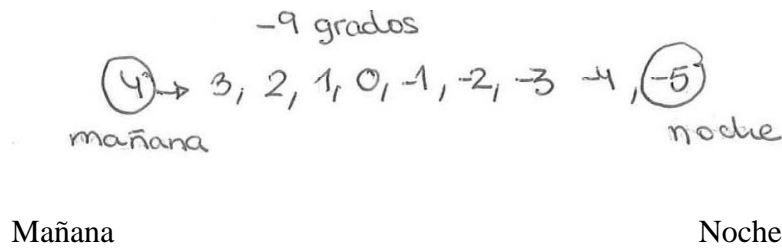 -9 grados
4 → 3, 2, 1, 0, -1, -2, -3 -4, -5
mañana noche
Mañana Noche